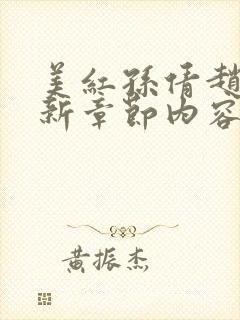 美红孙倩趙
新章節内容
黄振杰